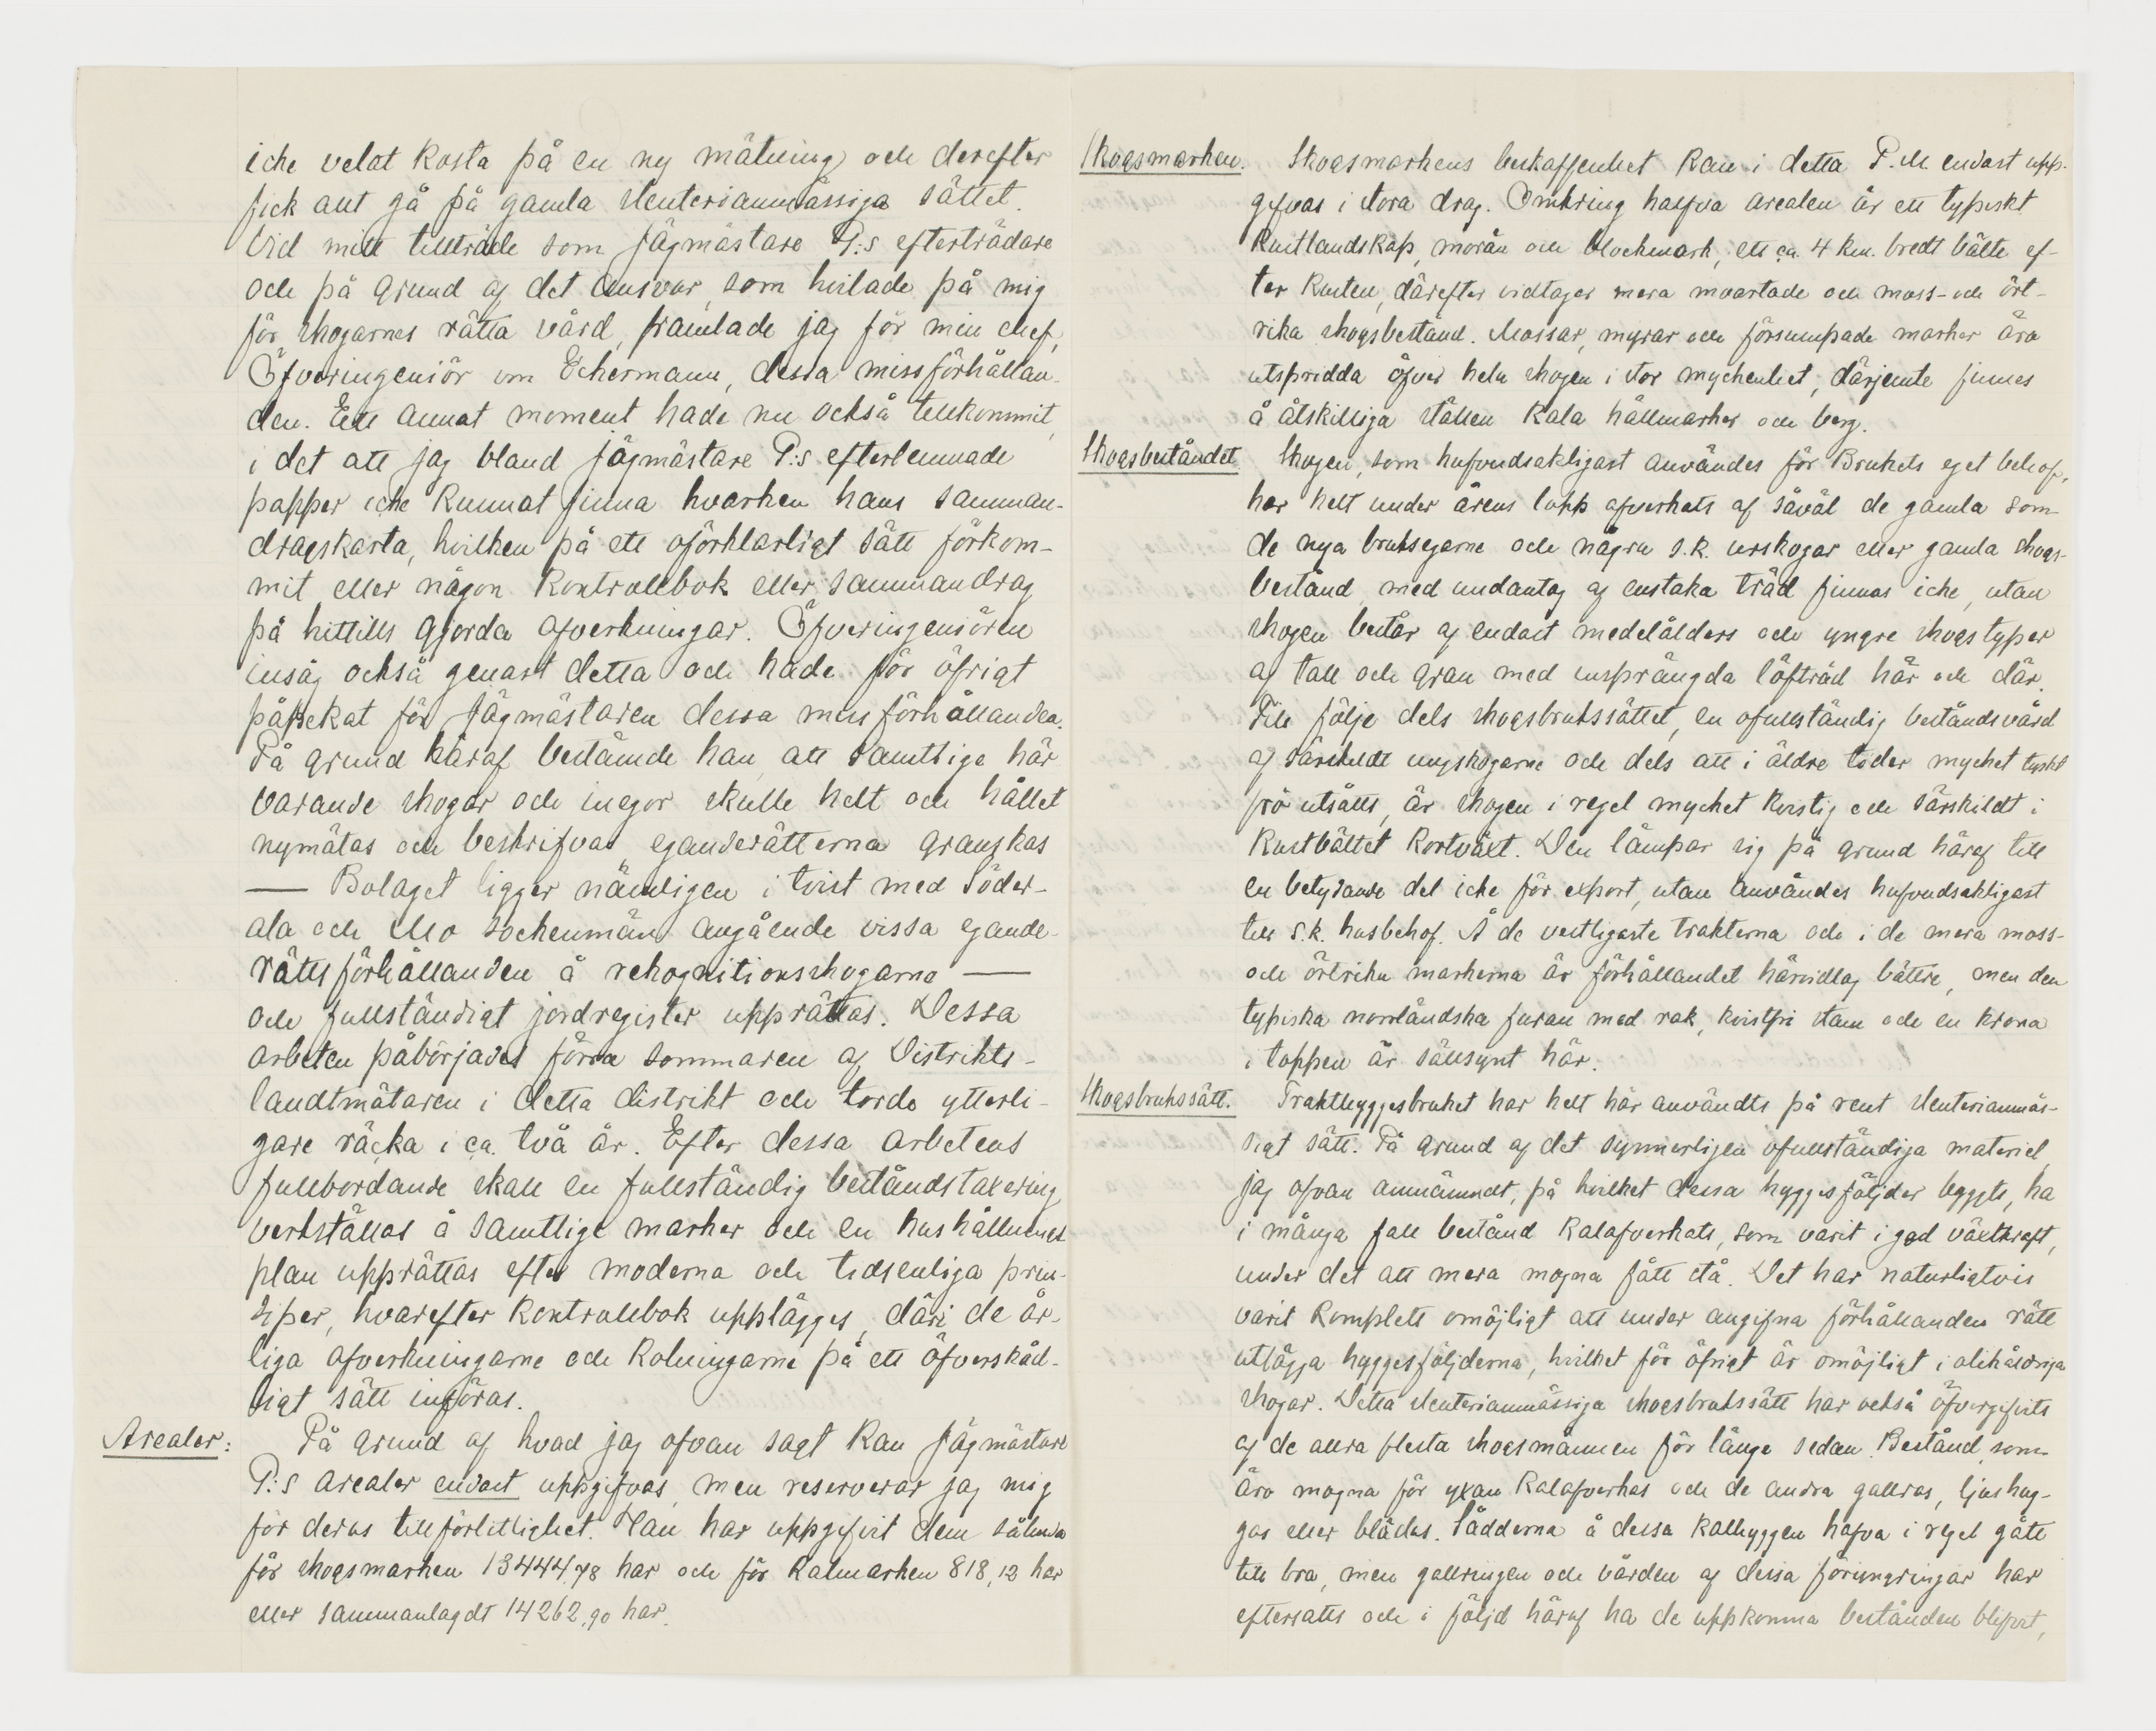 icke velat kosta på en ny mätning och derefter
fick allt gå på gamla slenterianmässiga sättet.
Vid mitt tillträde som Jägmästare P:s efterträdare
och på grund af det ansvar, som hvilade på mig
för skogarnes rätta vård, framlade jag för min chef,
Öfveringeniör von Eckermann, dessa missförhållan-
den. Ett annat moment hade nu också tillkommit,
i det att jag bland Jägmästare P:s efterlemnade
papper icke kunnat finna hvarken hans samman-
dragskarta, hvilken på ett oförklarligt sätt förkom-
mit eller någon Kontrollbok eller sammandrag
på hittills gjorda afverkningar. Öfveringeniören
insåg också genast detta och hade för öfrigt
påpekat för Jägmästaren dessa missförhållanden.
På grund häraf bestämde han, att samtliga här
varande skogar och inegor skulle helt och hållet
nymätas och beskrifvas, eganderätterna granskas
— Bolaget ligger nämligen i tvist med Söder-
ala och Mo sockenmän angående vissa egande-
rättsförhållanden å rekognitionsskogarna —
och fullständigt jordregister upprättas. Dessa
arbeten påbörjades förra sommaren af Distrikts-
landtmätaren i detta distrikt och torde ytterli-
gare räcka i ca. två år. Efter dessa arbetens
fullbordande skall en fullständig beståndstaxering
verkställas å samtliga marker och en hushållnings
plan upprättas efter moderna och tidsenliga prin-
siper, hvarefter Kontrollbok upplägges, däri de år-
liga afverkningarne och Kolningarne på ett öfverskåd-
ligt sätt införas.
Arealer:
På grund af hvad jag ofvan sagt kan Jägmästare
P:s arealer endast uppgifvas, men reserverar jag mig
för deras tillförlitlighet. Han har uppgifvit dem sålunda
för skogsmarken 13444,78 har och för Kalmarken 818,12 har
eller sammanlagdt 14262,90 har.
Skogsmarken.
Skogsmarkens beskaffenhet kan i detta P.M. endast upp-
gifvas i stora drag. Omkring halfva arealen är ett typiskt
Kustlandskap, morän och blockmark, ett ca. 4 km. bredt bälte ef-
ter Kusten, därefter vidtager mera moartade och moss- och ört-
rika skogsbestånd. Mossar, myrar och försumpade marker äro
utspridda öfver hela skogen i stor myckenhet; därjemte finnes
å åtskilliga ställen Kala hällmarker och berg.
Skogsbeståndet
Skogen, som hufvudsakligast användes för Brukets eget behof,
har helt under årens lopp afverkats af såväl de gamla som
de nya bruksegarne och några s.k. urskogar eller gamla skogs-
bestånd, med undantag af enstaka träd finnas icke, utan
skogen består af endast medelålders och yngre skogstyper
af tall och gran med insprängda löfträd här och där.
Till följe dels skogsbrukssättet, en ofullständig beståndsvård
af särskildt ungskogarne och dels att i äldre tider mycket tyskt
frö utsåtts, är skogen i regel mycket kvistig och särskildt i
Kustbältet Kortväxt. Den lämpar sig på grund häraf till
en betydande del icke för export, utan användes hufvudsakligast
till s.k. husbehof. Å de vestligaste trakterna och i de mera moss-
och örtrika markerna är förhållandet härvidlag bättre, men den
typiska norrländska furan med rak, kvistfri stam och en krona
i toppen är sällsynt här.
Skogsbrukssätt.
Trakthyggesbruket har helt här användts på rent slenterianmäs-
sigt sätt. På grund af det synnerligen ofullständiga materiel,
jag ofvan omnämndt, på hvilket dessa hyggesföljder byggts, ha
i många fall bestånd Kalafverkats, som varit i god växtkraft,
under det att mera mogna fått stå. Det har naturligtvis
varit Komplett omöjligt att under angifna förhållanden rätt
utlägga hyggesföljderna, hvilket för öfrigt är omöjligt i olikåldriga
skogar. Detta slenterianmässiga skogsbrukssätt har också öfvergifvits
af de allra flesta skogsmännen för länge sedan. Bestånd, som
äro mogna för yxan Kalafverkas och de andra gallras, ljushug-
gas eller blädas. Sådderna å dessa kalhyggen hafva i regel gått
till bra, men gallringen och vården af dessa föryngringar har
eftersatts och i följd häraf ha de uppkomna bestånden blifvit,